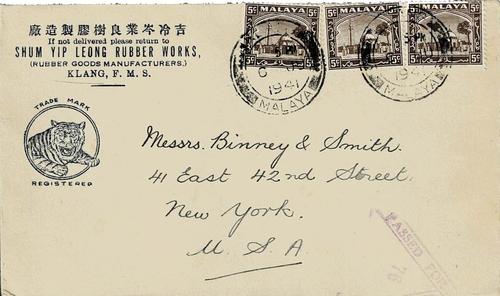 廠造製膠樹良業岑冷吉
If not delivered please return to
SHUM YIP LEONG RUBBER WORKS,
(RUBBER GOODS MANUFACTURERS.)
KLANG, F. M. S.
TRADE MARK
REGISTERED
5c MALAYA 5c
5c MALAYA 5c
5c MALAYA 5c
1941
MALAYA
1941
MALAYA
Messrs. Binney & Smith.
41 East 42nd Street,
New York.
U. S. A
PASSED FOR